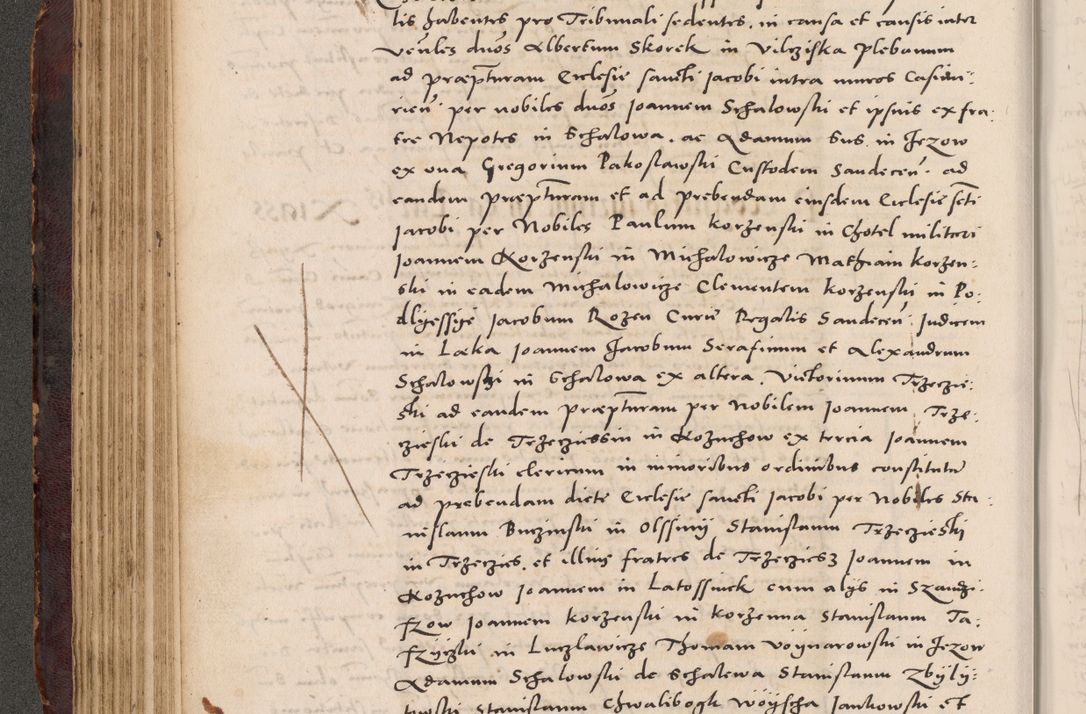 lis habentes pro Tribunali sedentes, in causa et causis inter
Ven̄les dn̄os Albertum Skorek in Vilcziska plebanum
ad præpt̄uram Ecclesie sancti Jacobi intra muros Casimi-
rien̄ per nobiles dn̄os Joannem Schalowski et ipsius ex fra-
tre Nepotes in Schalowa. ac Adamum sus. in Jezow
ex una Gregorium Pakoslawski Custodem Sandecen̄. ad
eandem præpt̄uram et ad prebendam eiusdem Ecclesie sc̄ti
Jacobi per Nobiles Paulum Korzenski in Chotel militari
Joannem Korzenski in Michalowicze Mathiam Korzen-
ski in eadem Michalowicze Clementem Korzenski in Po-
dlyessye Jacobum Rozen Curie Regalis Sandecen̄. Judicem
in Laka Joannem Jacobum Serafinum et Alexandrum
Schalowski in Schalowa ex altera. Victorinum Trzeczie-
ski ad eandem præpt̄uram per Nobilem Joannem Trze-
czieski de Trzecziessin in Kozuchow ex tercia Joannem
Trzeczieski clericum in minoribus ordinibus constitutū
ad prebendam dicte Ecclesie sancti Jacobi per Nobiles Sta-
nislaum Buczinski in Olssiny Stanislaum Trzeczieski
in Trzeczies. et illius fratres de Trzecziesz Joannem in
Kozuchow Joannem in Latossinek cum alys in
Joannem Korzenski in Korzenna Stanislaum Ta-
in Luczlawicze Thomam Voynarowski in Jezow
Adamum Schalowski de Schalewa Stanislaum Zbyly-
towski Stanislaum Chwalibogk Woyscha Jankowski et